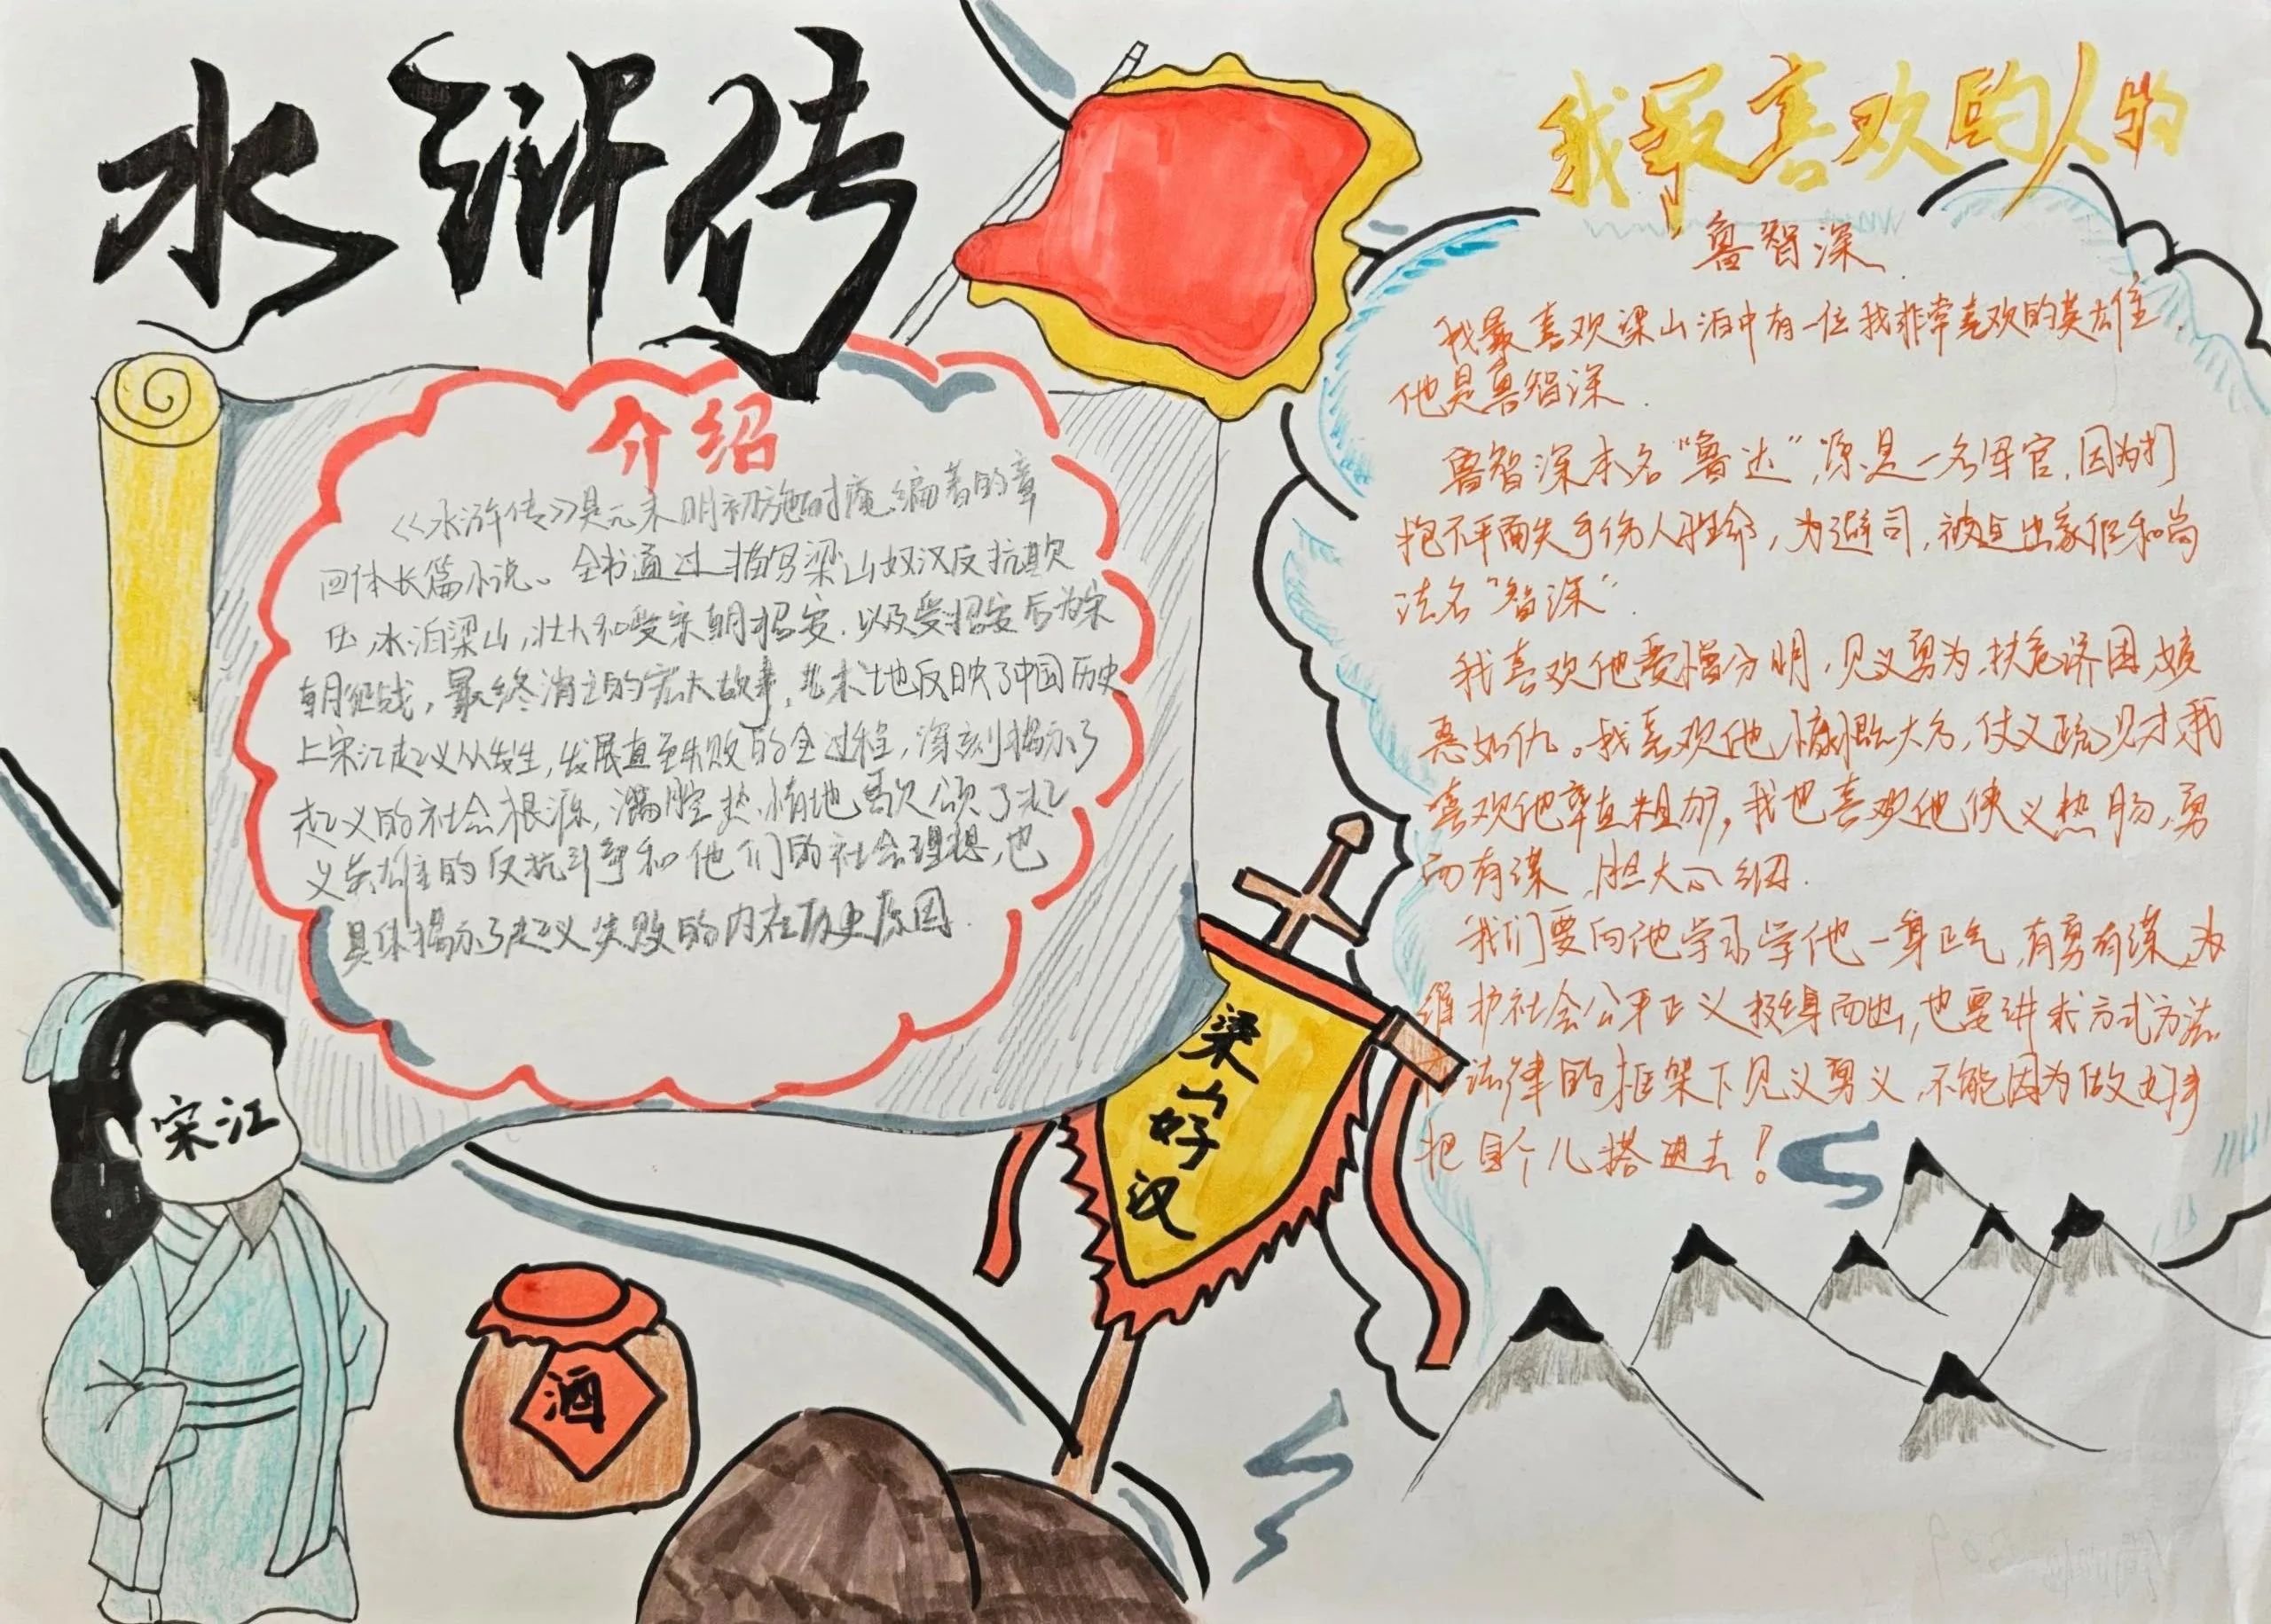 水浒传
介绍
《水浒传》是元末明初施耐庵编著的章
回体长篇小说。全书通过描写梁山好汉反抗欺
压,水泊梁山,壮大和受宋朝招安,以及受招安后为宋
朝征战,最终消亡的宏大故事,艺术地反映了中国历史
上宋江起义从发生,发展直至失败的全过程,深刻揭示了
起义的社会根源,满腔热情地歌颂了起
义英雄的反抗斗争和他们的社会理想,也
具体揭示了起义失败的内在历史原因.
我最喜欢的人物
鲁智深
我最喜欢梁山泊中有一位我非常喜欢的英雄
他是鲁智深.
鲁智深本名“鲁达”,原是一名军官,因为打
抱不平而失手伤人性命,为避司,被迫出家但和尚
法名“智深”.
我喜欢他爱憎分明,见义勇为,扶危济困,嫉
恶如仇。我喜欢他慷慨大方,仗义疏财我
喜欢他率直粗犷,我也喜欢他侠义热肠,勇
而有谋,胆大心细.
我们要向他学习学他一身正气,有勇有谋,为
维护社会公平正义挺身而出,也要讲求方式方法
在法律的框架下见义勇义,不能因为做好事
把自个儿搭进去!
梁山好汉
宋江
酒